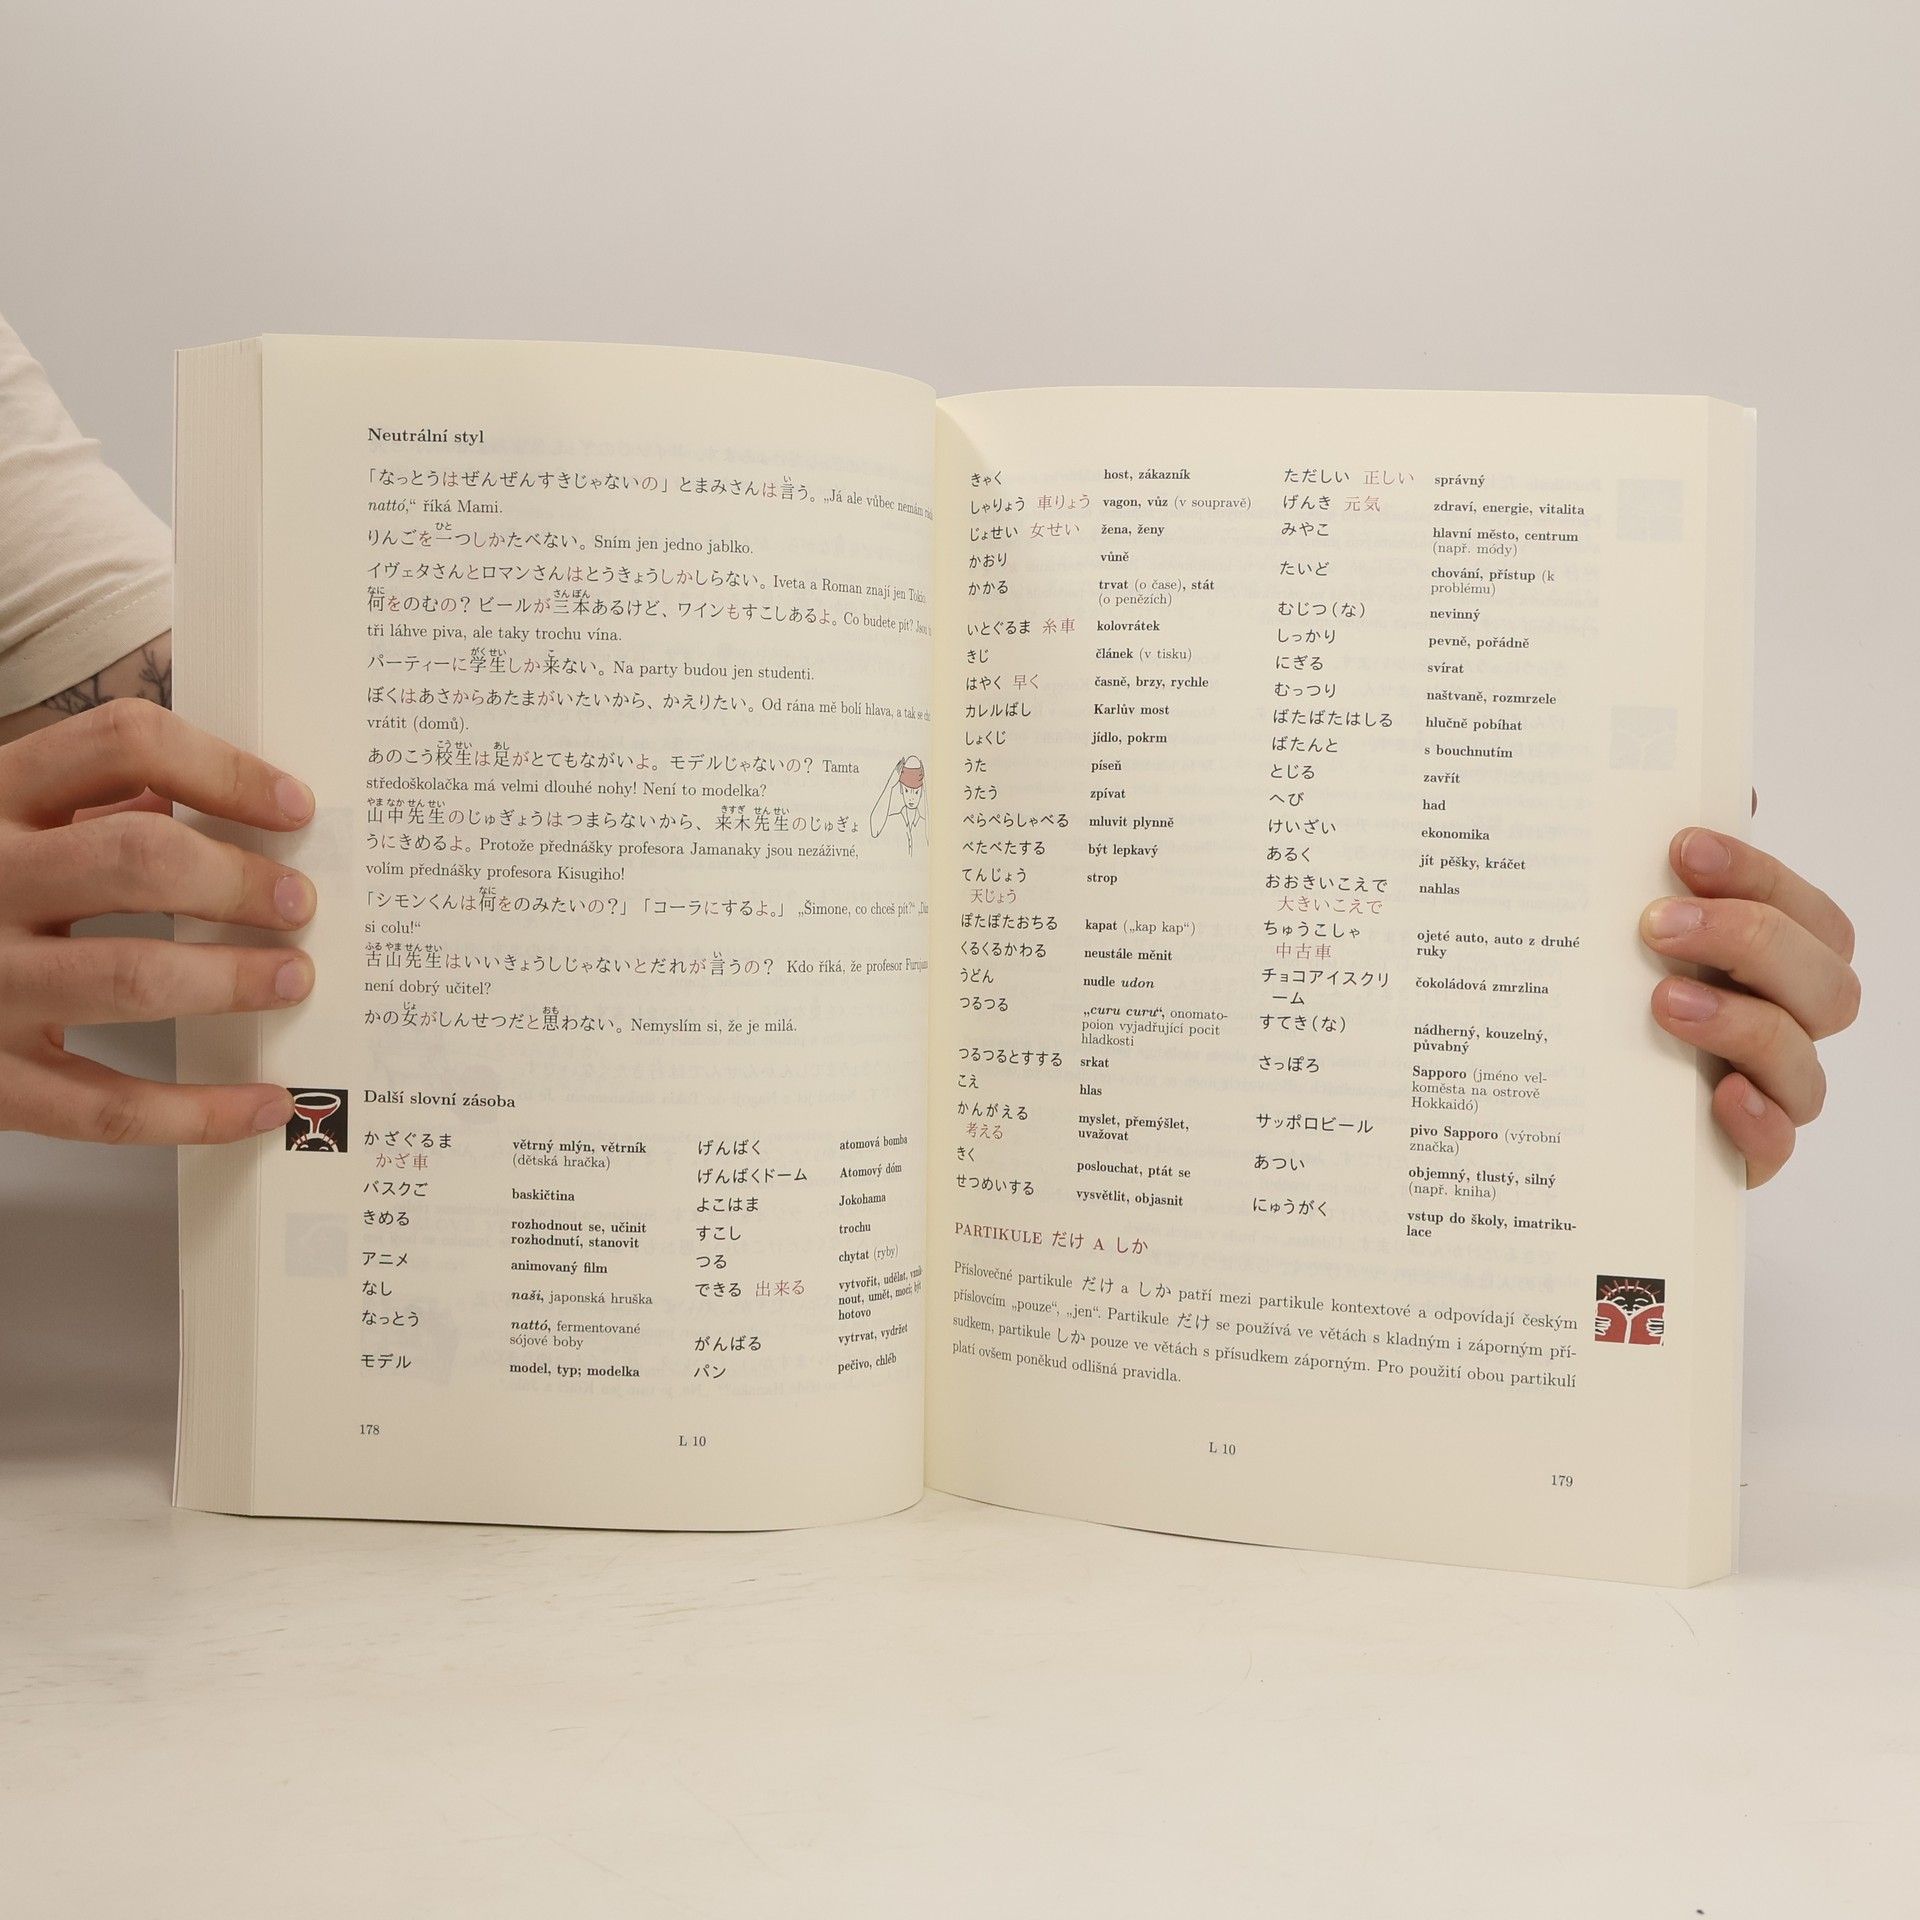 Neutrální styl
「なっとうはぜんぜんすきじゃないの」とまみさんは言う。„Já ale vůbec nemám
nattó,“ říká Mami.
りんごを一つしかたべない。Sním jen jedno jablko.
イヴェタさんとロマンさんはとうきょうしかしらない。Iveta a Roman znají jen Tokio.
何をのむの？ビールが三本あるけど、ワインもすこしあるよ。Co budete pít?
tři láhve piva, ale taky trochu vína.
パーティーに学生しか来ない。Na party budou jen studenti.
ぼくはあさからあたまがいたいから、かえりたい。Od rána mě bolí hlava, a tak se
vrátit (domů).
あのこう校生は足がとてもながいよ。モデルじゃないの？ Tamta
středoškolačka má velmi dlouhé nohy! Není to modelka?
山中先生のじゅぎょうはつまらないから、来木先生のじゅぎょ
うにきめるよ。Protože přednášky profesora Jamanaky jsou nezáživné,
volím přednášky profesora Kisugiho!
「シモンくんは何をのみたいの？」「コーラにするよ。」„Šimone, co chceš pít?“
si colu!“
古山先生はいいきょうしじゃないとだれが言うの？ Kdo říká, že profesor
není dobrý učitel?
かの女がしんせつだと思わない。Nemyslím si, že je milá.
Další slovní zásoba
かざぐるま かざ車 větrný mlýn, větrník (dětská hračka)
バスクご baskičtina
きめる rozhodnout se, učinit rozhodnutí, stanovit
アニメ animovaný film
なし naši, japonská hruška
なっとう nattó, fermentované sójové boby
モデル model, typ; modelka
げんばく atomová bomba
げんばくドーム Atomový dóm
よこはま Jokohama
すこし trochu
つる chytat (ryby)
できる 出来る vytvořit, udělat, vznik- nout, umět, moci; být hotovo
がんばる vytrvat, vydržet
パン pečivo, chléb
178
L 10
きゃく host, zákazník
しゃりょう 車りょう vagon, vůz (v soupravě)
じょせい 女せい žena, ženy
かおり vůně
かかる trvat (o čase), stát (o penězích)
いとぐるま 糸車 kolovrátek
きじ článek (v tisku)
はやく 早く časně, brzy, rychle
カレルばし Karlův most
しょくじ jídlo, pokrm
うた píseň
うたう zpívat
ぺらぺらしゃべる mluvit plynně
べたべたする být lepkavý
てんじょう 天じょう strop
ぽたぽたおちる kapat („kap kap“)
くるくるかわる neustále měnit
うどん nudle udon
つるつる „curu curu“, onomato- poion vyjadřující pocit hladkosti
つるつるとすする srkat
こえ hlas
かんがえる 考える myslet, přemýšlet, uvažovat
きく poslouchat, ptát se
せつめいする vysvětlit, objasnit
ただしい 正しい správný
げんき 元気 zdraví, energie, vitalita
みやこ hlavní město, centrum (např. módy)
たいど chování, přístup (k problému)
むじつ(な) nevinný
しっかり pevně, pořádně
にぎる svírat
むっつり naštvaně, rozmrzele
ばたばたはしる hlučně pobíhat
ばたんと s bouchnutím
とじる zavřít
へび had
けいざい ekonomika
あるく jít pěšky, kráčet
おおきいこえで 大きいこえで nahlas
ちゅうこしゃ 中古車 ojeté auto, auto z druhé ruky
チョコアイスクリーム čokoládová zmrzlina
すてき(な) nádherný, kouzelný, půvabný
さっぽろ Sapporo (jméno vel- koměsta na ostrově Hokkaidó)
サッポロビール pivo Sapporo (výrobní značka)
あつい objemný, tlustý, silný (např. kniha)
にゅうがく vstup do školy, imatriku- lace
PARTIKULE だけ A しか
Příslovečné partikule だけ a しか patří mezi partikule kontextové a odpovídají českým
příslovcím „pouze“, „jen“. Partikule だけ se používá ve větách s kladným i záporným pří-
sudkem, partikule しか pouze ve větách s přísudkem záporným. Pro použití obou partikulí
platí ovšem poněkud odlišná pravidla.
L 10
179